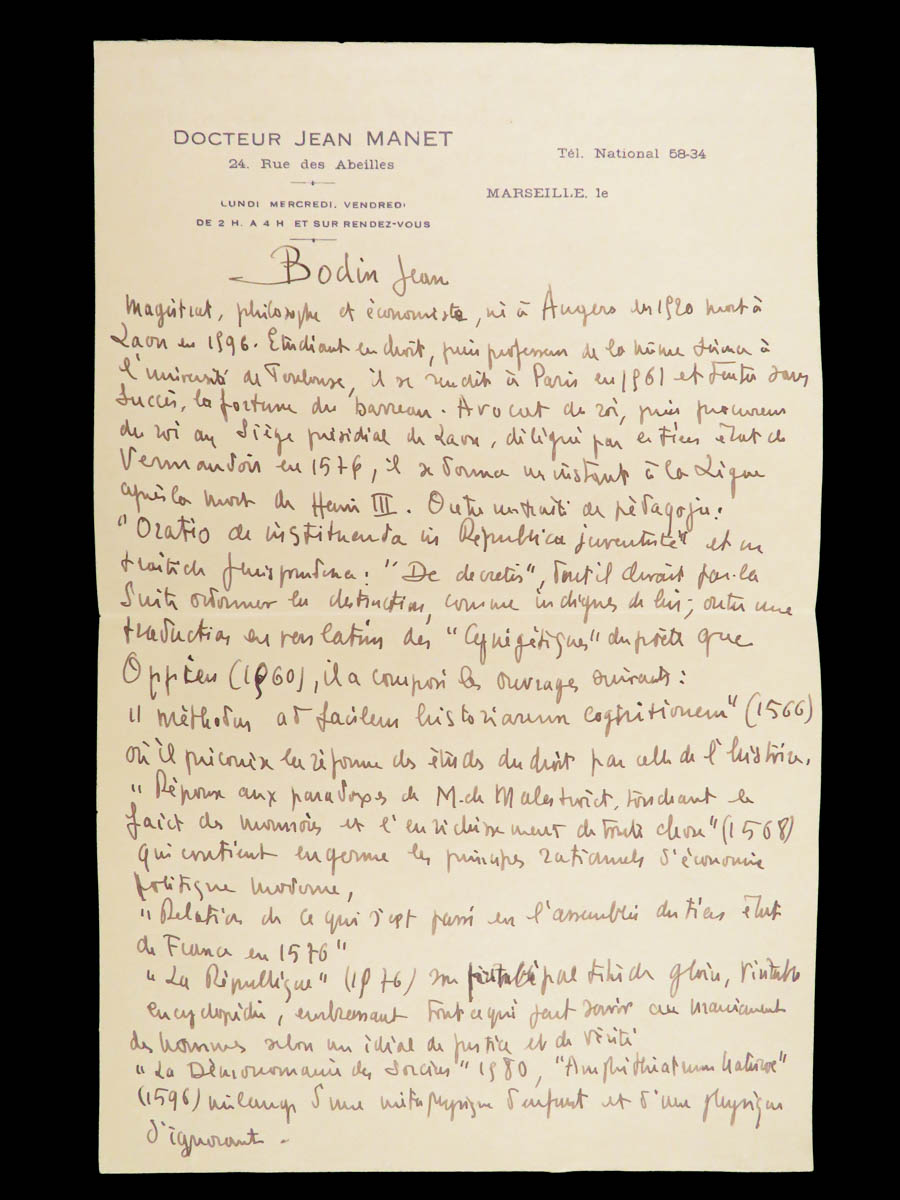 DOCTEUR JEAN MANET
24, Rue des Abeilles
Tél. National 58-34
MARSEILLE, le
LUNDI MERCREDI, VENDREDI
DE 2 H. A 4 H ET SUR RENDEZ-VOUS
Bodin Jean
Magistrat, philosophe et économiste, né à Angers en 1520 mort à
Laon en 1596. Etudiant en droit, puis professeur de la même science à
l'université de Toulouse, il se rendit à Paris en 1561 et tenta sans
succès, la fortune du barreau. Avocat du roi, puis procureur
du roi au Siège présidial de Laon, délégué par le tiers état de
Vermandois en 1576, il se donna un instant à la Ligue
après la mort de Henri III. Outre un traité de pédagogie:
"Oratio de instituenda in Républica juventute" et un
traité de jurisprudence: "De decretis", dont il devait par la
suite ordonner la destruction, comme indignes de lui; outre une
traduction en vers latins des "Cynégétiques" du poète grec
Oppien (1560), il a composé les ouvrages suivants:
"Méthodus ad facilem historiarum cognitionem" (1566)
où il préconise la réforme des études du droit par celle de l'histoire.
"Réponse aux paradoxes de M. de Malestroict, touchant le
faict des monnoies et l'enrichissement de toute chose" (1568)
qui contient en germe les principes rationnels d'économie
politique moderne,
"Relation de ce qui s'est passé en l'assemblée du tiers état
de France en 1576"
"La République" (1576) son principal titre de gloire, véritable
encyclopédie, embrassant tout ce qui peut servir au maniement
des hommes selon un idéal de justice et de vérité
"La Démonomanie des Sorciers" 1580, "Amphithéatrum Naturae"
(1596) mélange d'une métaphysique d'enfant et d'une physique
d'ignorant.